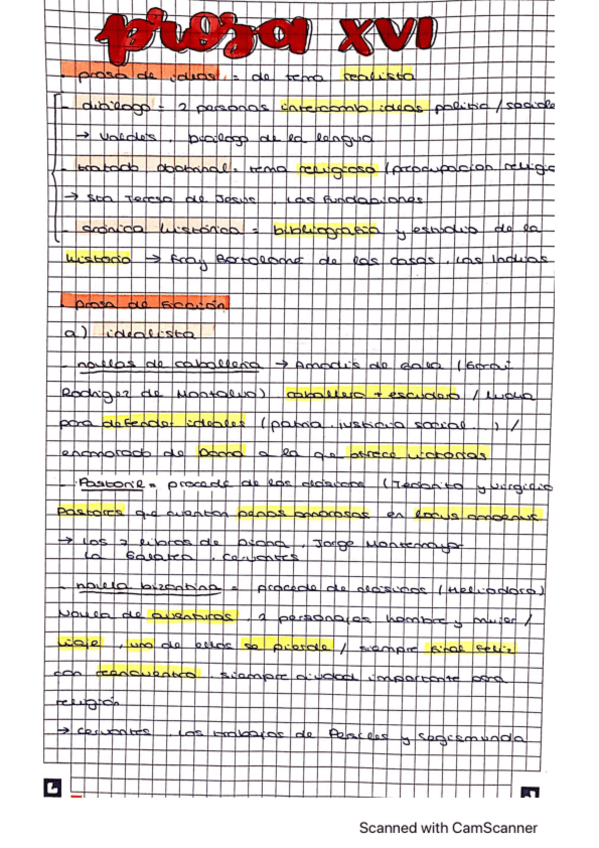 prosa XVI
- prosa de ideas = de tema realista
- diálogo = 2 personas intercamb ideas política / sociale
→ Valdés, Diálogo de la lengua
- tratado doctrinal = tema religioso (preocupación religio
→ Sta Teresa de Jesús, Las Fundaciones
- crónica histórica = bibliografía y estudio de la
historia → Fray Bartolomé de las Casas, Las Indias
- prosa de ficción
a) idealista
- novelas de caballería → Amadís de Gaula (Garci
Rodríguez de Montalvo) caballero + escudero / lucha
para defender ideales (patria, justicia social...) /
enamorado de Dama a la que ofrece victorias
- Pastoril = procede de los clásicos (Teócrito y Virgilio
Pastores que cuentan penas amorosas en locus amoenus
→ Los 7 libros de Diana, Jorge Montemayor
La Galatea, Cervantes
- novela bizantina = procede de clásicos (Heliodoro)
Novela de aventuras, 2 personajes hombre y mujer /
viaje, uno de ellos se pierde / siempre final feliz
con reencuentro, siempre ciudad importante para
religión
→ Cervantes, Los trabajos de Persiles y Segismunda
Scanned with CamScanner